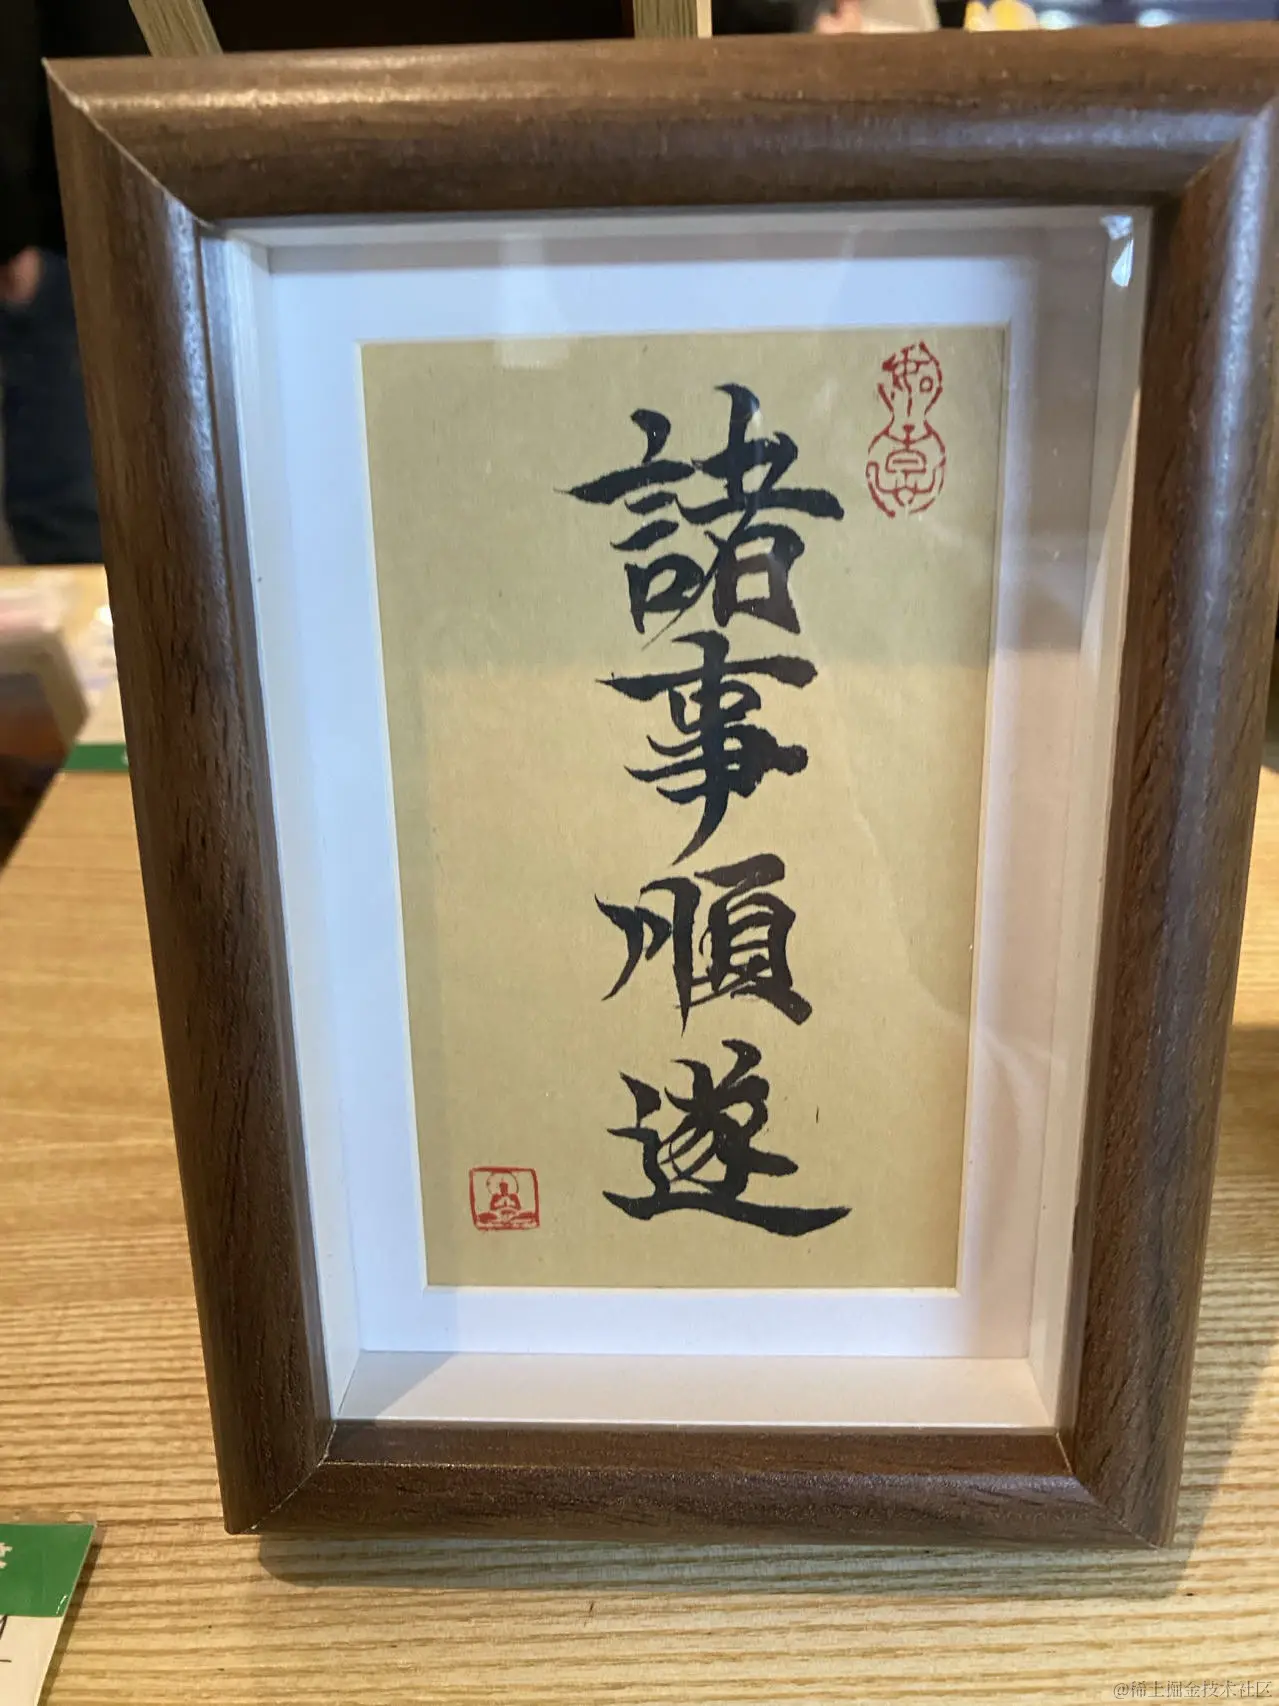 如意
諸事順遂
@稀土掘金技术社区